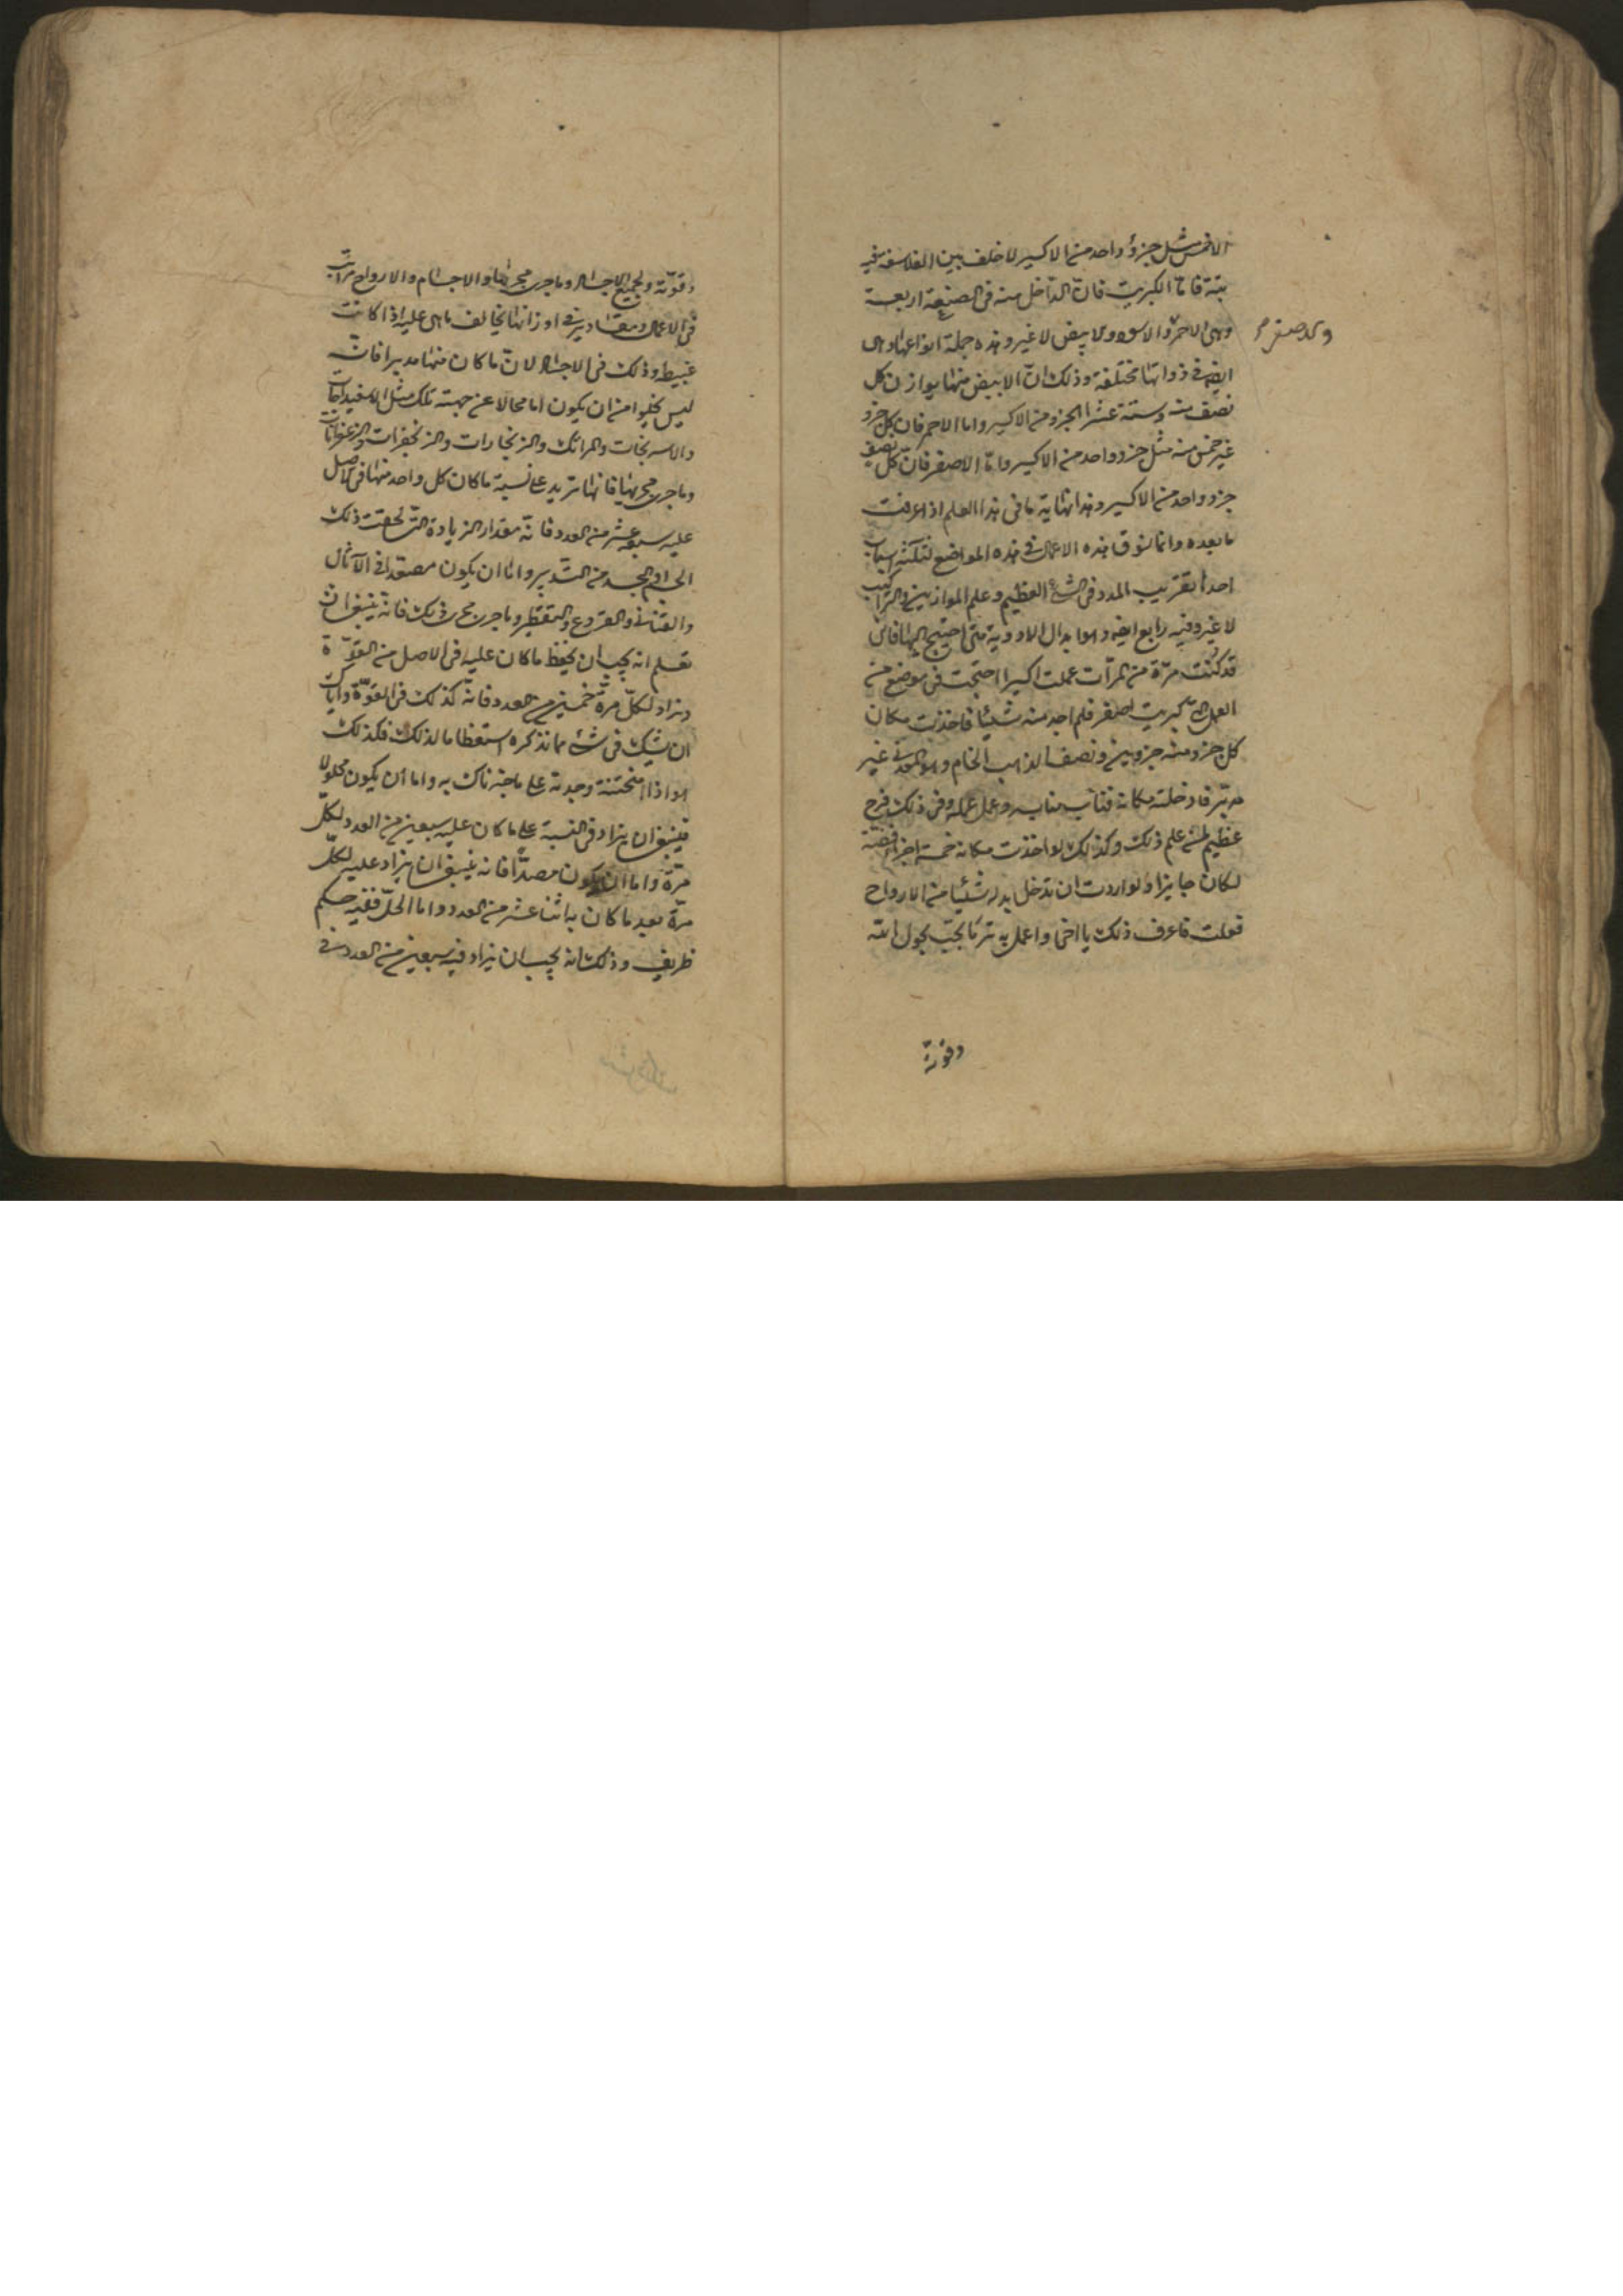 الا خمس مثل جزؤ واحد من الاكسير لا خلف بين الفلاسفة فيه
بتة فاما الكبريت فان الداخل منه فى الصنعة اربعة
وهى الاحمر والاسود والابيض لا غير وهذه جملة انواعها وهى
والاصفر
ايضا فى ذواتها مختلفة وذلك انّ الابيض منها يوازن كل
نصف منه وستة عشر الجزو من الاكسير واما الاحمر فان كل جزو
غير خمس منه مثل جزو واحد من الاكسير وامّا الاصفر فانّ كل نصف
جزو واحد من الاكسير وهذا نهاية ما فى هذا العلم اذا عرفت
ما بعده وانما نسوق هذه الاعمال فى هذه المواضع لثلثة اسباب
احدا بقريب المدد فى الشئ العظيم وعلم الموازين والتراكيب
لا غير وفيه رابع ايضا وهو ابدال الادوية متى احتيج اليها فانى
قد كنت مرّة من المرّات عملت اكسيرا احتجت فى موضع من
العمل الى كبريت اصفر فلم اجد منه شيئا فاخذت مكان
كل جزو منه جزويين ونصف الذهب الخام وهو المعدنى غير
مدبّر فادخلته مكانه فناب منابه وعمل عمله وفى ذلك فرح
عظيم لمن علم ذلك وكذلك لو اخذت مكانه خمسة اجزا فضة
لكان جايزا ولو اردت ان تدخل بدله شيئا من الارواح
فعلت فاعرف ذلك يا اخى واعمل به تر ما تحبّ بحول الله
وقوته
وقوّته ولجميع الاجساد وما جرى مجراها والاجسام والارواح مراتب
فى الاعمال ومقادير فى اوزانها يخالف ما هى عليه اذا كانت
غبيط وذلك فى الاجساد لانّ ما كان منها مدبرا فانّه
ليس يخلوا من ان يكون اما محالا عن جهته تلك مثل الاسفيداجات
والاسرنجات والمراتك والزنجارات والزنجفرات والزعفرانات
وما جرى مجريها فانها تزيد على نسبة ما كان كل واحد منها فى الاصل
عليه سبعة عشر من العدد فانّه مقدار الزيادة التى لحقت ذلك
الجرم والجسد من التدبير وامّا ان يكون مصعّدا فى الآثال
والقنانى والقروع والتقطير وما جرى مجرى ذلك فانه ينبغى ان
تعلم انه يجب ان يحفظ ما كان عليه فى الاصل من القوّة
ويزاد لكلّ مرّة خمسين من العدد فانه كذلك فى القوّة واياك
ان تشك فى شئ مما نذكره استعظاما لذلك فكذلك
هو اذا امتحنته وجدته على ما خبرناك به واما ان يكون محلولا
فينبغى ان يزاد فى النسبة على ما كان عليه سبعين من العدد لكلّ
مرّة واما ان يكون مصدّأ فانه ينبغى ان يزاد عليه لكلّ
مرّة بعد ما كان به اثنا عشر من العدد واما الحلّ ففيه حكم
ظريف وذلك انه يجب ان يزاد فيه سبعين من العدد فى